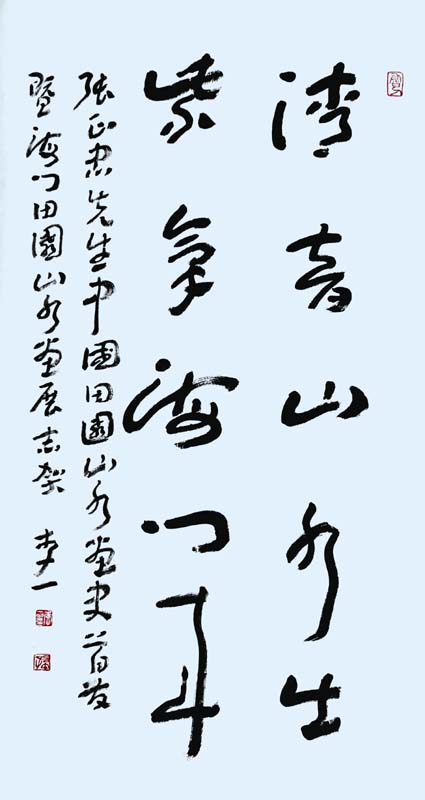 清音山水生
紫氣海门
张正忠先生中国田园山水画史首发
暨海门田园山水画展志贺 李一